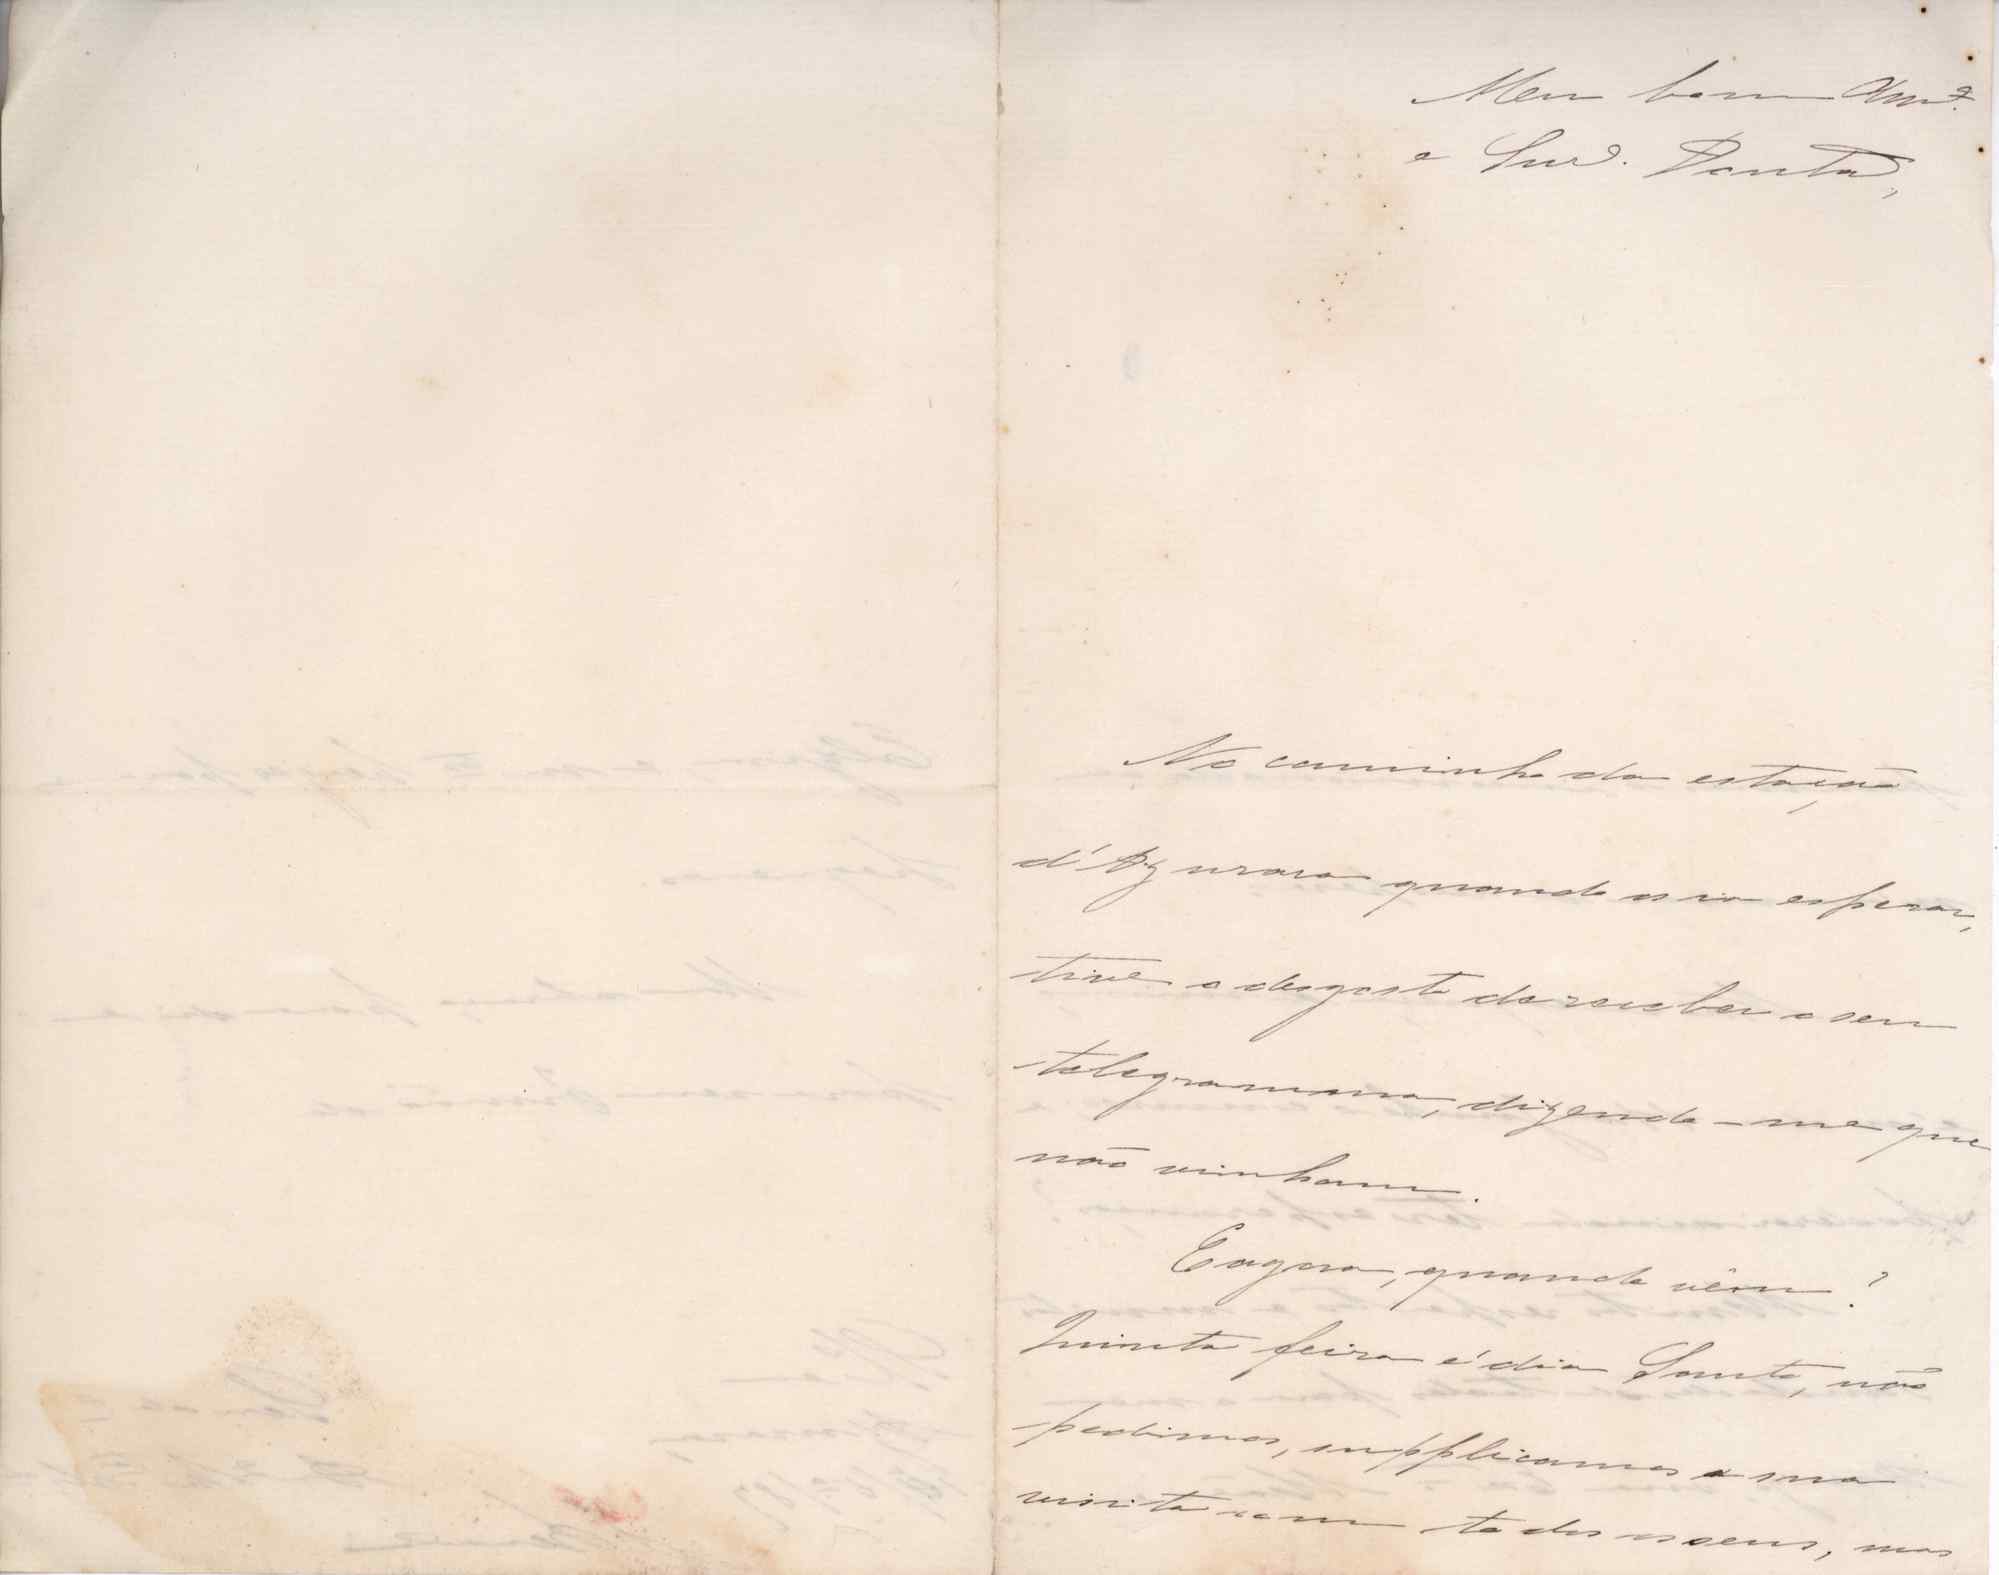 Meu bom Am.º
e Snr.
No caminho da estação
d'Azurara quando os ia esperar,
tive o desgosto de receber o seu
telegramma, dizendo-me que
não vinham.
E agora, quando vêm?
Quinta feira é dia Santo, não
pedimos, supplicamos a sua
visita com todos os seus, mas